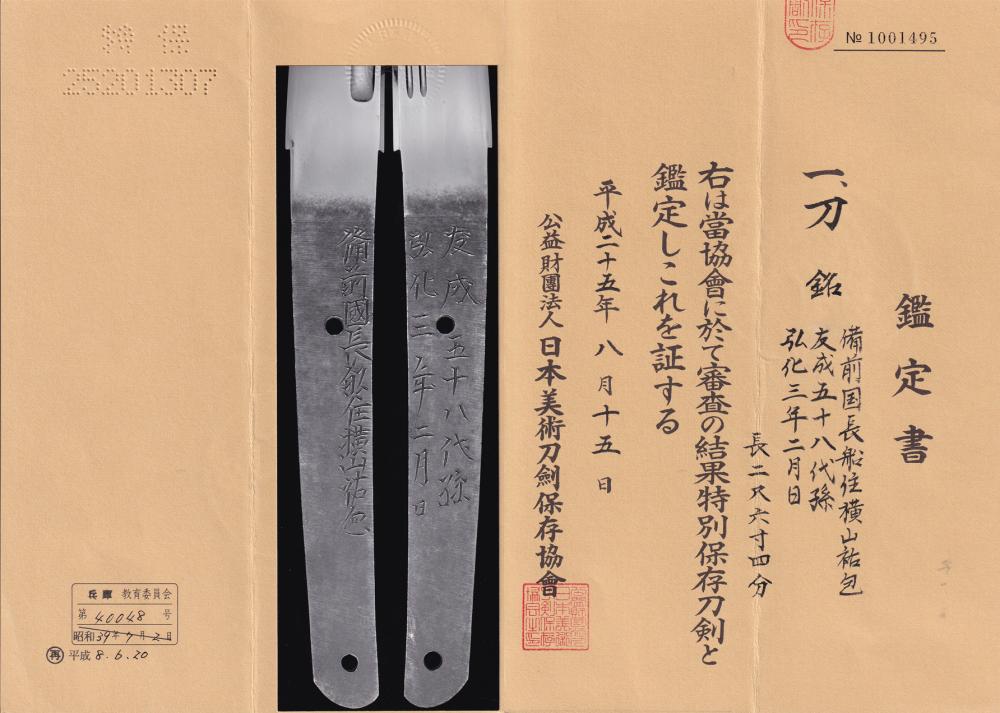 № 1001495
鑑定書
一、刀 銘
備前国長船住横山祐包
友成五十八代孫
弘化三年二月日
長二尺六寸四分
右は當協會に於て審査の結果特別保存刀剣と
鑑定しこれを証する
平成二十五年八月十五日
公益財團法人日本美術刀劍保存協會
友成五十八代孫
弘化三年二月日
備前國長船住横山祐包
25201307
兵庫 教育委員会
第 40048 号
昭和39年7月2日
再 平成 8.6.20